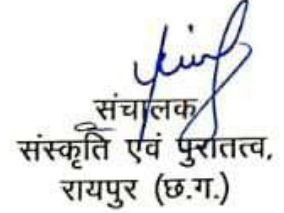 संचालक
संस्कृति एवं पुरातत्व,
रायपुर (छ.ग.)